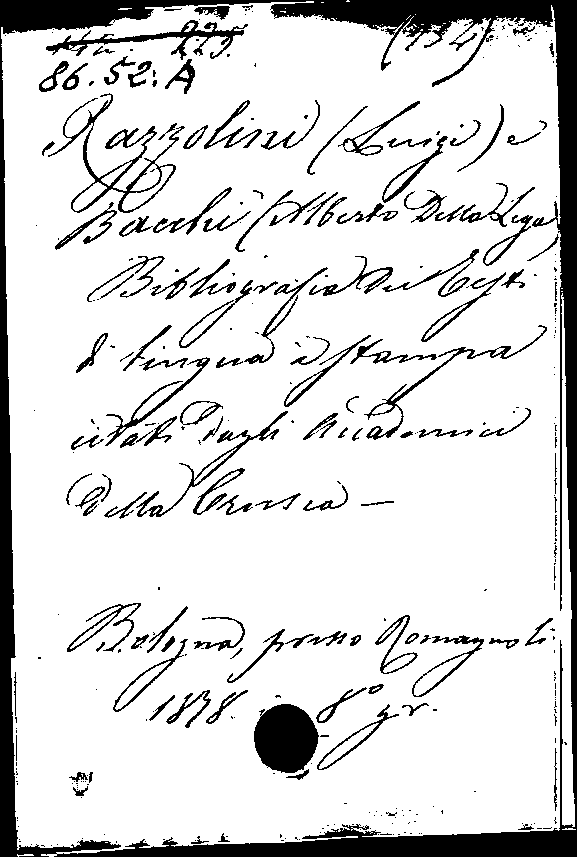 225. (132)
86.52.A
Razzolini (Luigi) e
Bacchi (Alberto Della Lega)
Bibliografia dei Testi
di lingua a stampa
citati dagli Accademici
Della Crusca –
Bologna, presso Romagnoli
1878. in 8º gr.